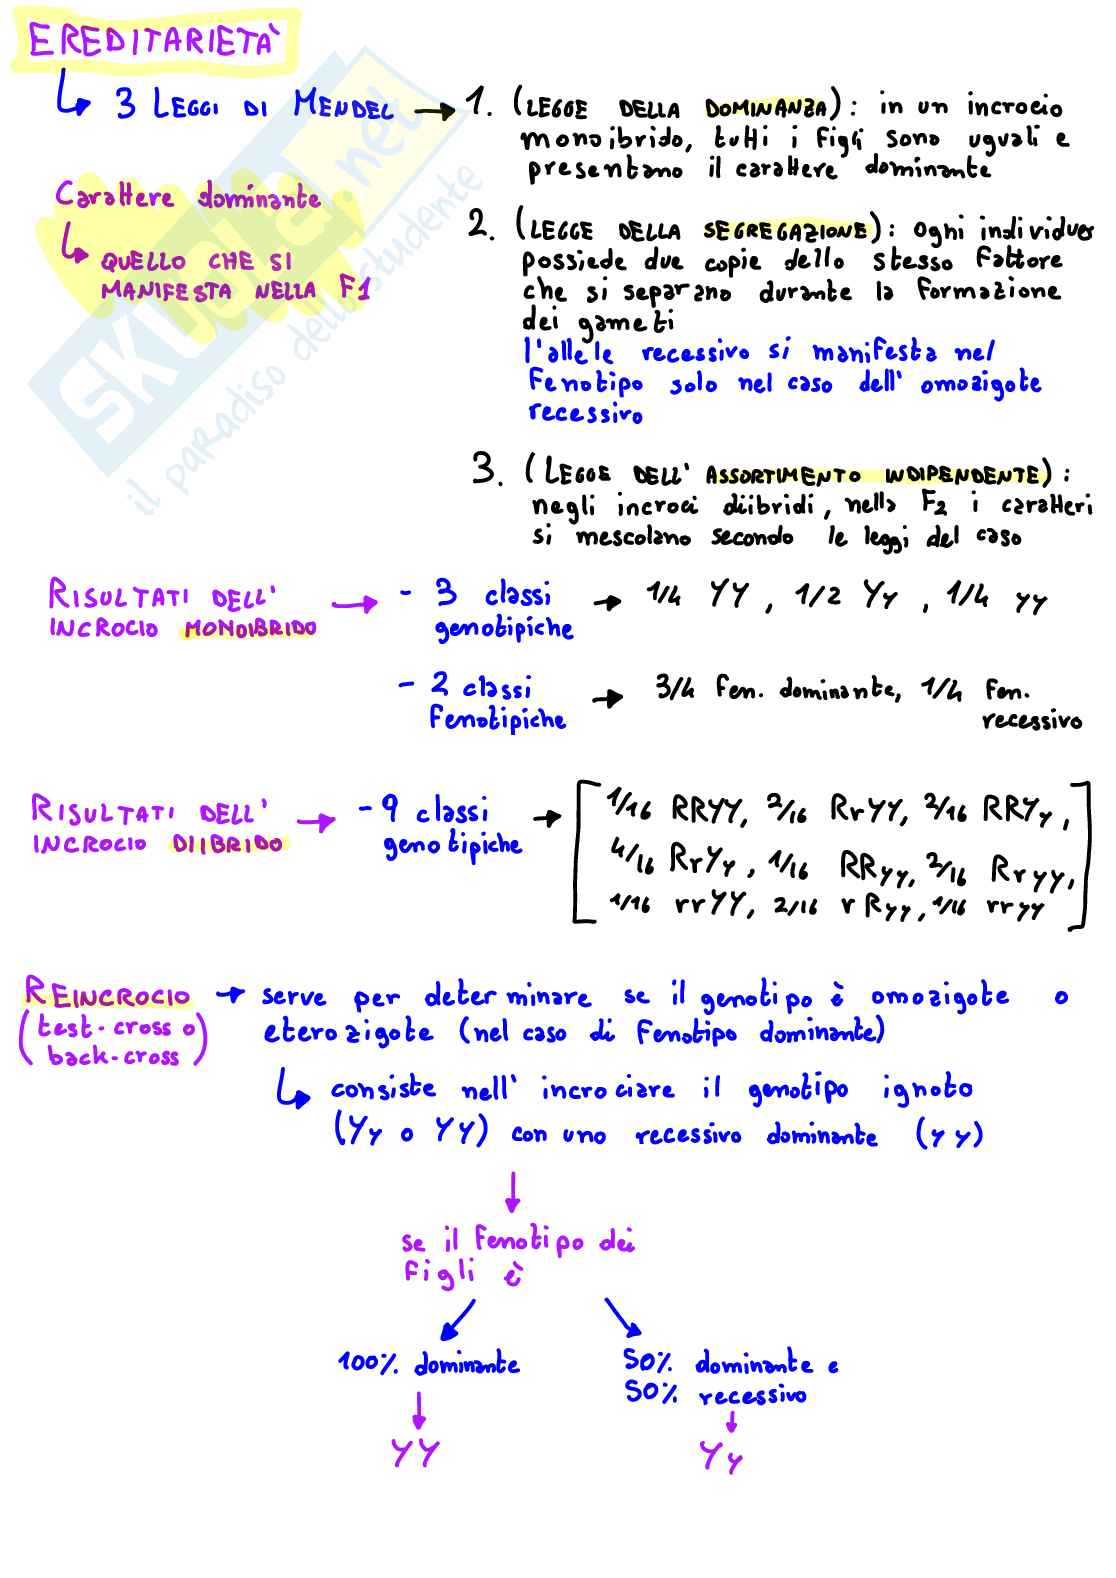 EREDITARIETÀ
3 LEGGI DI MENDEL
1. (LEGGE DELLA DOMINANZA): in un incrocio
monoibrido, tutti i figli sono uguali e
presentano il carattere dominante
Carattere dominante
QUELLO CHE SI
MANIFESTA NELLA F1
2. (LEGGE DELLA SEGREGAZIONE): Ogni individuo
possiede due copie dello stesso fattore
che si separano durante la formazione
dei gameti
l'allele recessivo si manifesta nel
fenotipo solo nel caso dell'omozigote
recessivo
3. (LEGGE DELL'ASSORTIMENTO INDIPENDENTE):
negli incroci diibridi, nella F2 i caratteri
si mescolano secondo le leggi del caso
SKUOLA.net
il paradiso dello studente
RISULTATI DELL'
INCROCIO MONOIBRIDO
- 3 classi
genotipiche
1/4 YY, 1/2 Yy, 1/4 yy
- 2 classi
fenotipiche
3/4 fen. dominante, 1/4 fen.
recessivo
RISULTATI DELL'
INCROCIO DIIBRIDO
- 9 classi
genotipiche
1/16 RRYY, 2/16 RrYY, 2/16 RRYy,
4/16 RrYy, 1/16 RRyy, 2/16 Rryy,
1/16 rrYY, 2/16 rRyy, 1/16 rryy
REINCROCIO
(test-cross o
back-cross)
serve per determinare se il genotipo è omozigote o
eterozigote (nel caso di fenotipo dominante)
consiste nell'incrociare il genotipo ignoto
(Yy o YY) con uno recessivo dominante (yy)
se il fenotipo dei
figli è
100% dominante
YY
50% dominante e
50% recessivo
Yy